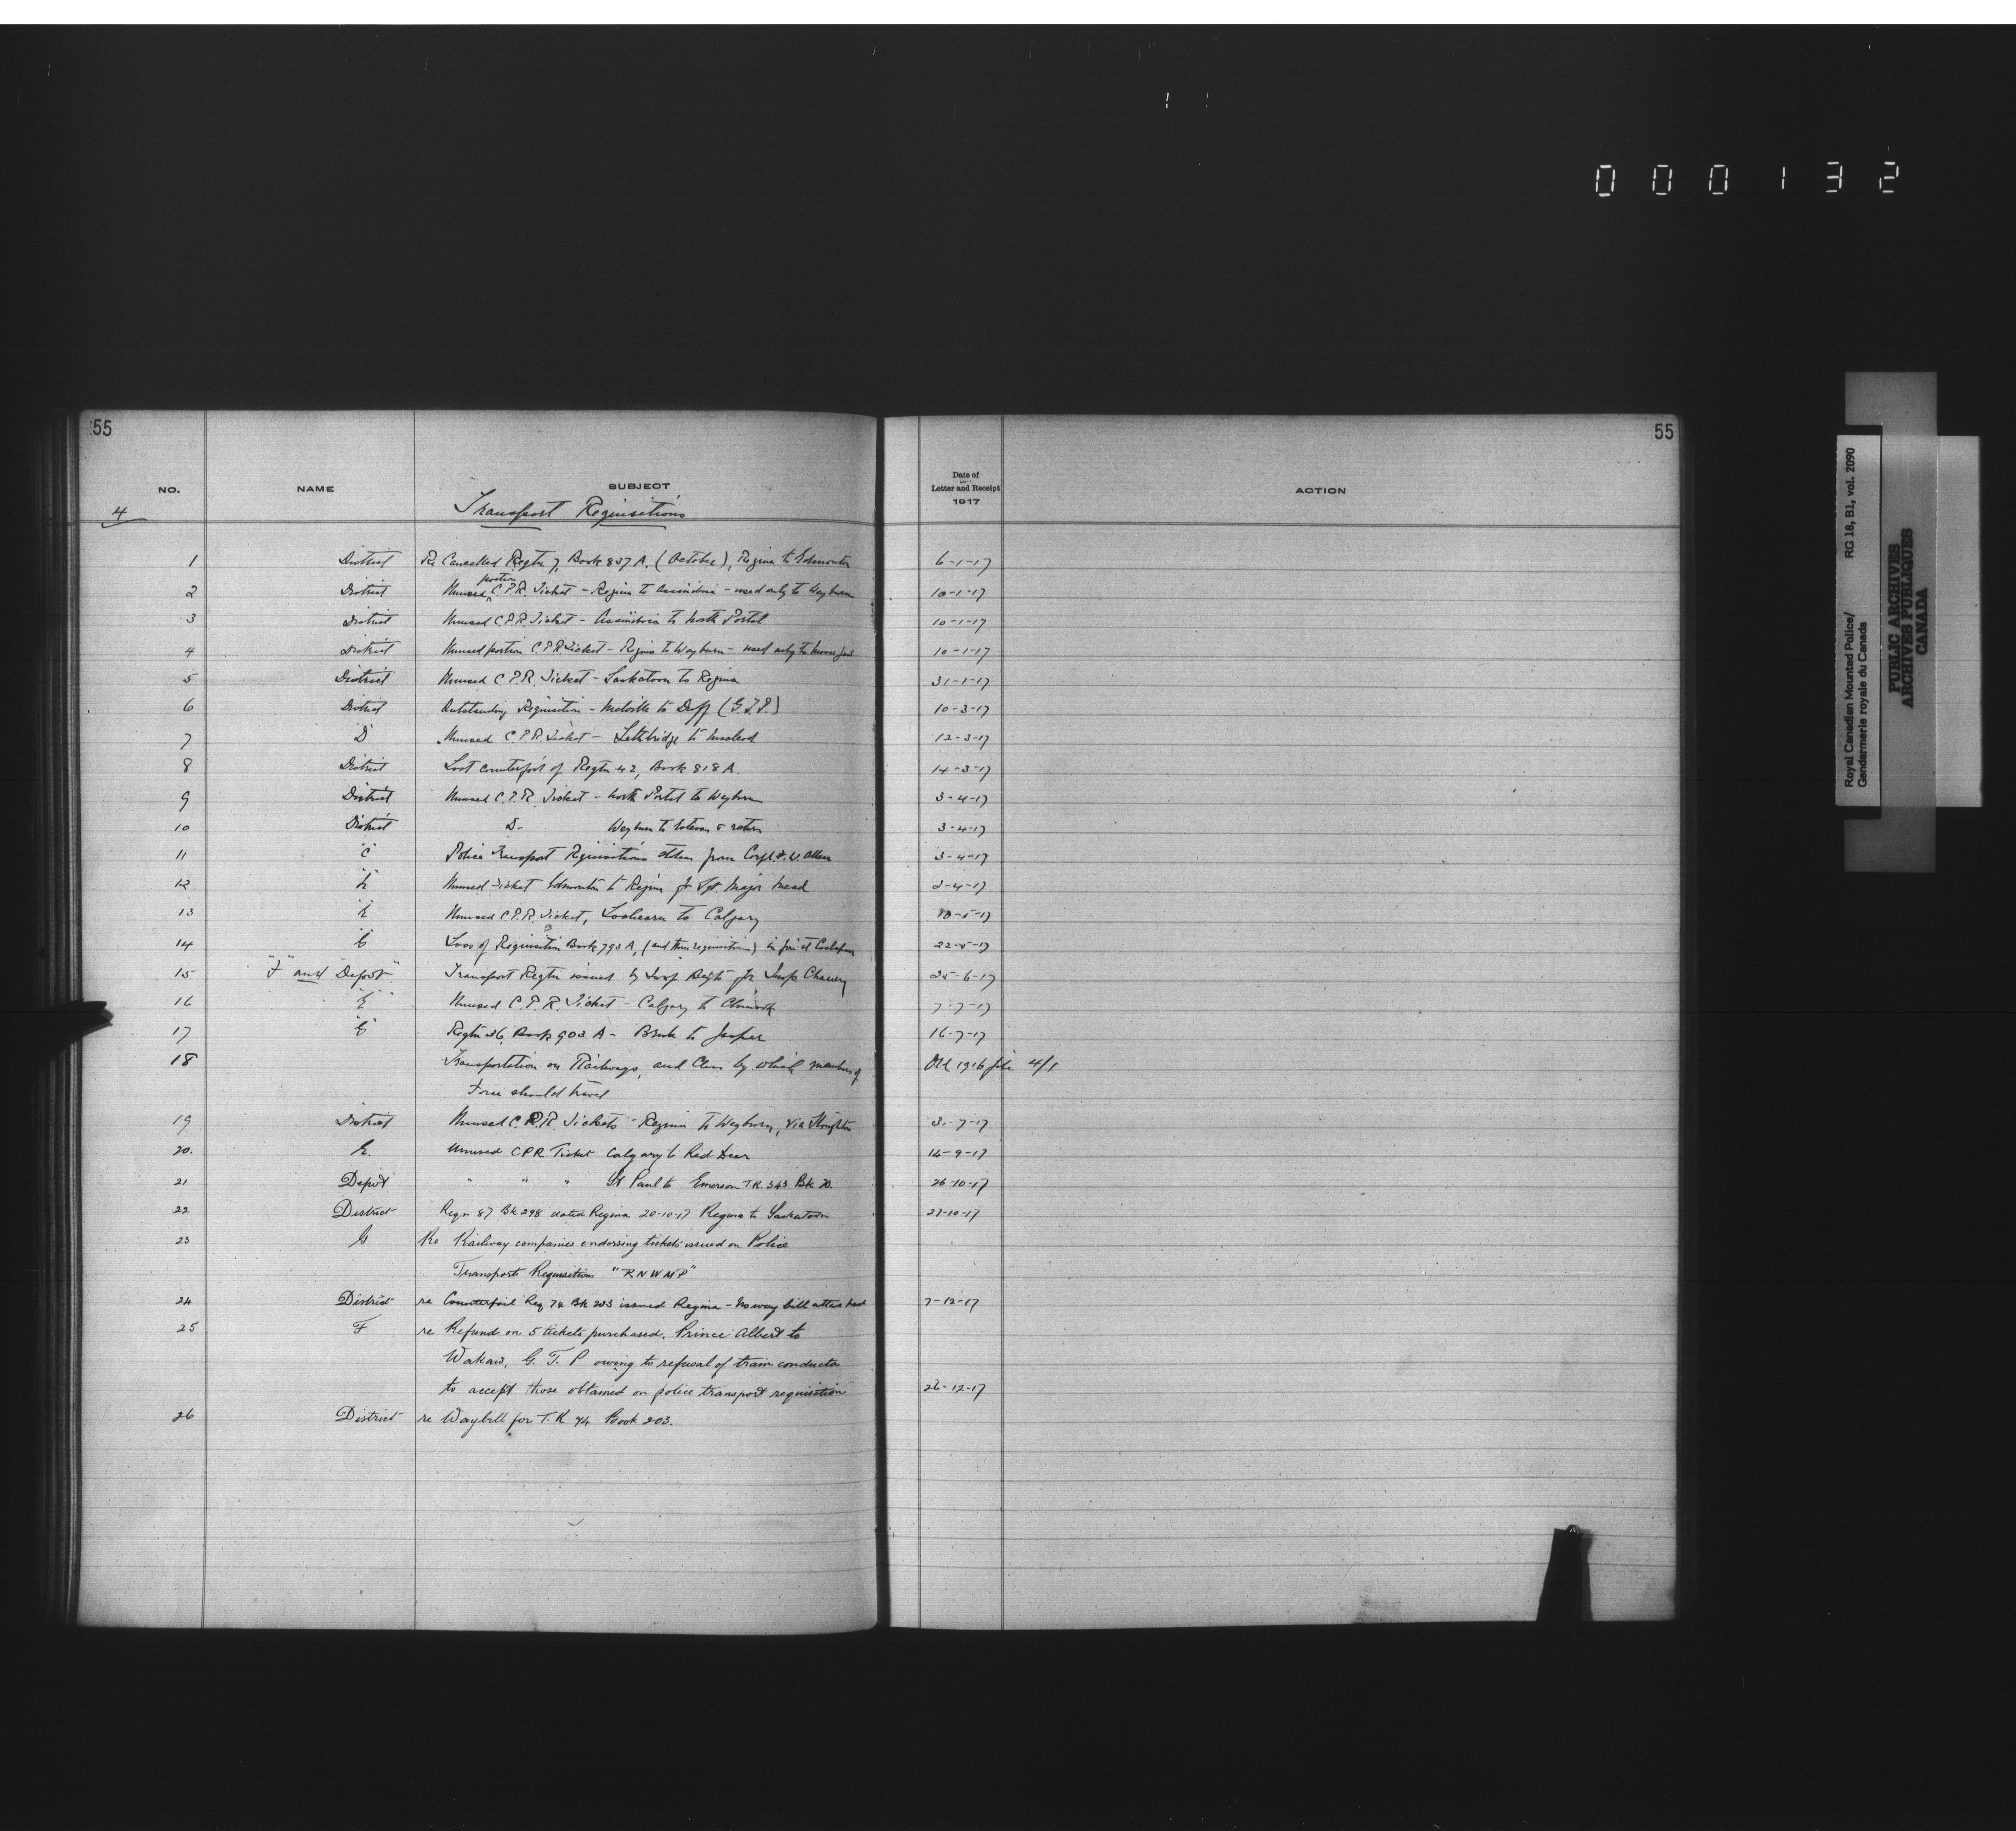 000132
55
55
NO.
NAME
SUBJECT
Date of
Letter and Receipt
1917
ACTION
4
Transport Requisitions
1 District Re Cancelled Regtn 7, Book 837 A, (October), Regina to Edmonton 6-1-17
2 District Unused portion C.P.R. Ticket - Regina to Assiniboia - used only to Weyburn 10-1-17
3 District Unused C.P.R. Ticket - Assiniboia to North Portal 10-1-17
4 District Unused portion C.P.R. Ticket - Regina to Weyburn - used only to Moose Jaw 10-1-17
5 District Unused C.P.R. Ticket - Saskatoon to Regina 31-1-17
6 District Outstanding Requisition - Melville to Duff (G.T.P.) 10-3-17
7 D Unused C.P.R. Ticket - Lethbridge to Macleod 12-3-17
8 District Lost counterfoil of Regtn 42, Book 818 A. 14-3-17
9 District Unused C.P.R. Ticket - North Portal to Weyburn 3-4-17
10 District D- Weyburn to Estevan & return 3-4-17
11 "C" Police Transport Requisitions stolen from Corpl. Allen 3-4-17
12 Unused Ticket Edmonton to Regina for Sgt. Major Mead 3-4-17
13 Unused C.P.R. Ticket, to Calgary
14 Loss of Requisition Book 793 A, (and three requisitions) in fire at 22-5-17
15 "F" and "Depot" Transport Regtn issued by Insp for Insp 25-6-17
16 Unused C.P.R. Ticket - Calgary to 7-7-17
17 Regtn 36, Book 903 A - to Jasper 16-7-17
18 Transportation on Railways, and Class by which members of Old 1916 file 4/1
Force should travel
19 District Unused C.P.R. Tickets - Regina to Weyburn, via Stoughton
20. E. Unused CPR Ticket Calgary to Red Deer 14-9-17
21 Depot " " " St Paul to Emerson T.R. 343 Bk 26-10-17
22 District Reqn 87 Bk 298 dated Regina 20-10-17 Regina to Saskatoon 27-10-17
23 G Re Railway companies endorsing tickets issued on Police
Transport Requisitions "RNWMP"
24 District re Counterfoil Req 74 Bk 203 issued Regina - No way bill attached 7-12-17
25 F re Refund on 5 tickets purchased, Prince Albert to
Wakaw, G. T. P owing to refusal of train conductor
to accept those obtained on police transport requisition 26-12-17
26 District re Waybill for T.R 74 Book 203.
Royal Canadian Mounted Police/
Gendarmerie royale du Canada
RG 18, B1, vol. 2090
PUBLIC ARCHIVES
ARCHIVES PUBLIQUES
CANADA